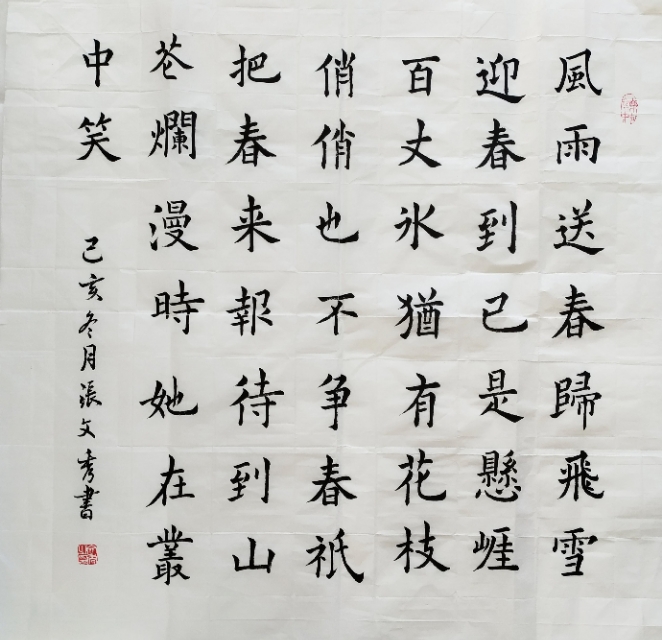 風雨送春歸飛雪
迎春到已是懸崕
百丈氷猶有花枝
俏俏也不争春祇
把春来報待到山
芲爛漫時她在叢
中笑
己亥冬月張文秀書